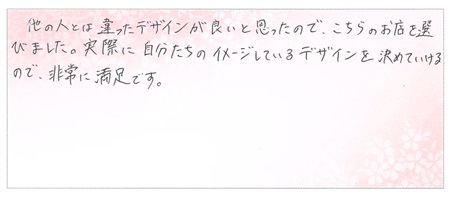 他の人とは違ったデザインが良いと思ったので、こちらのお店を選
びました。実際に自分たちのイメージしているデザインを決めていける
ので、非常に満足です。